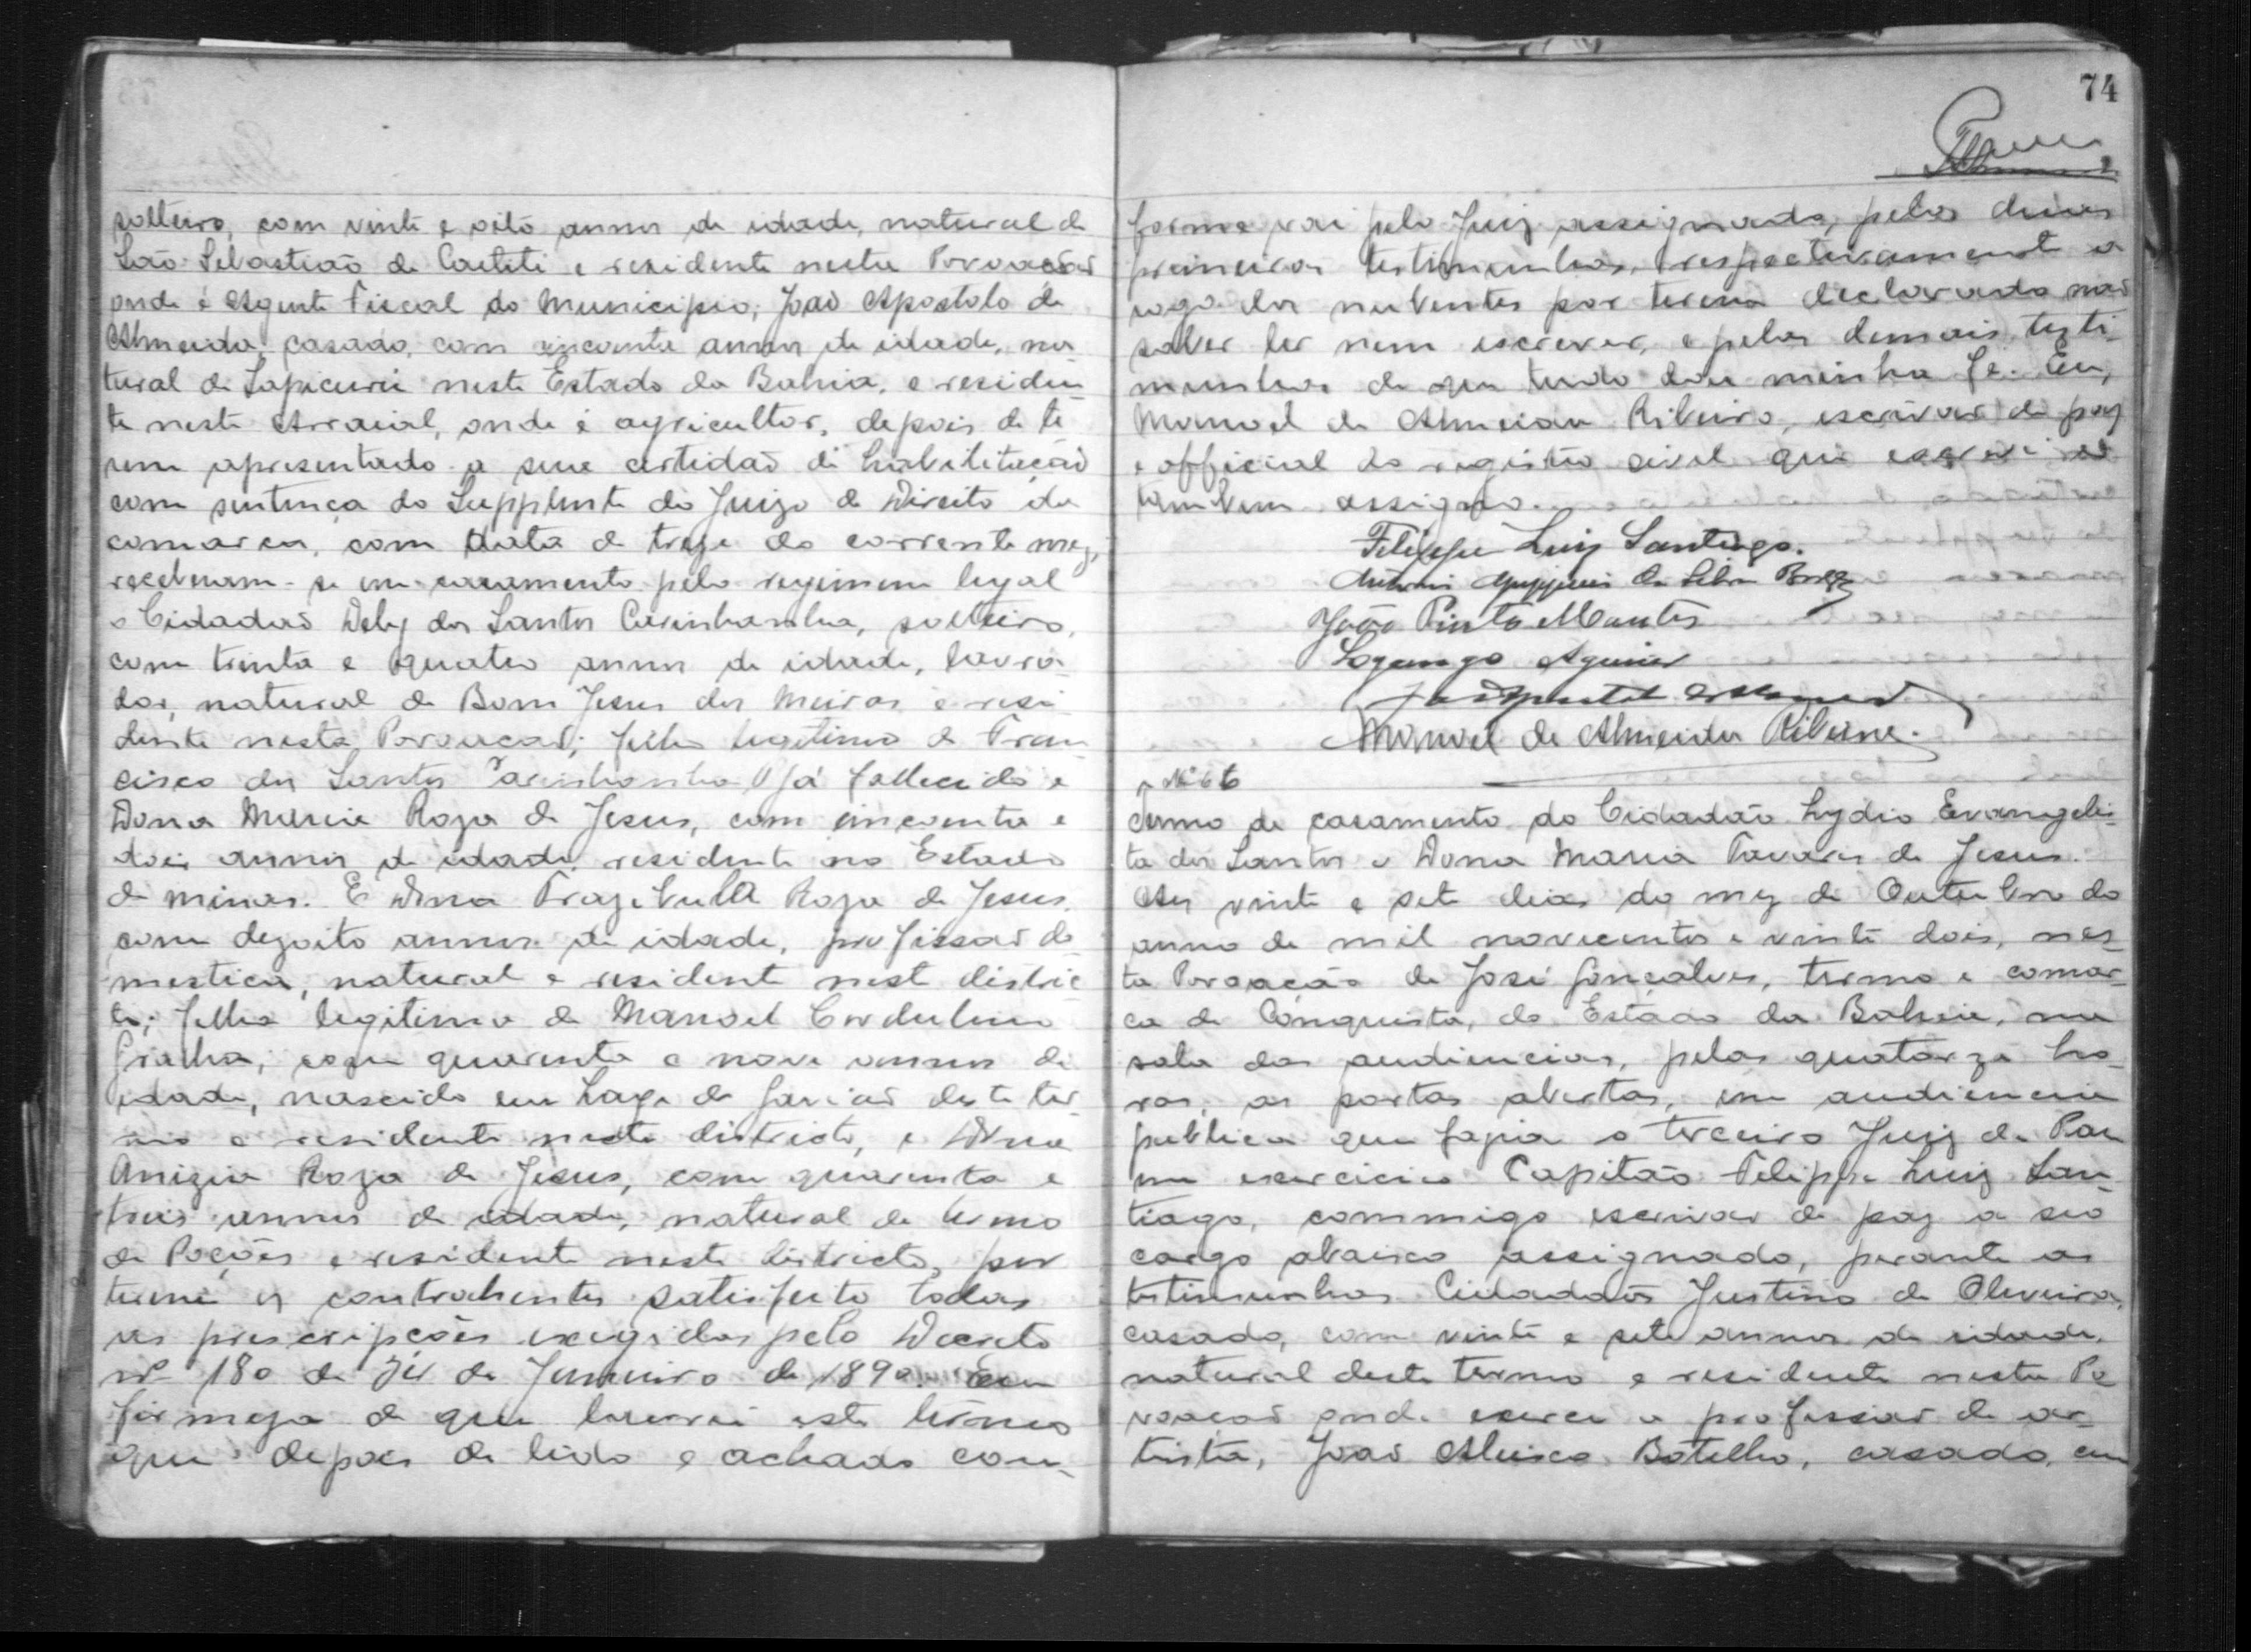 solteiro, com vinte e oito annos de idade, natural de
São Sebastião de Caeteti e residente nesta Povoação
onde é Agente Fiscal do Municipio; João Apostolo de
Almeida, casado, com cincoenta annos de idade, na-
tural de Sapicurú neste Estado da Bahia, e residen
te neste Arraial, onde é agricultor, depois de te
rem apresentado a sua certidão de habilitação
com sentença do Supplente do Juizo de Direito da
comarca, com data de treze do corrente mez,
receberam-se em casamento pelo regimem legal
o Cidadão Deby dos Santos Carinhanha, solteiro,
com trinta e quatro annos de idade, lavra-
dor, natural de Bom Jesus dos Meiras e resi
dente nesta Povoação; filho legitimo de Fran
cisco dos Santos Carinhanha já fallecido e
Dona Maria Roza de Jesus, com cincoenta e
dois annos de idade, residente no Estado
de Minas. E Dona Trazibulla Roza de Jesus,
com dezoito annos de idade, profissão do
mestica, natural e residente nest distric
to; filha legitima de Manoel Cordulino
com quarenta e nove annos de
idade, nascido em Lage do Gavião deste ter
mo e residente neste districto, e Dona
Anizia Roza de Jesus, com quarenta e
treis annos de idade, natural do termo
de Poções e residente neste districto, por
terem os contrahentes satisfeito todas
as prescripções exigidas pelo Decreto
nº 180 de de Janeiro de 1890. Em
firmeza de que lavrei este termo
que depois de lido e achado con-
74
forme vai pelo Juiz assignado, pelas duas
primeiras testimunhas, respectivamente a
rogo dos nubentes por terem declarado não
saber ler nem escrever, e pelas demais testi-
munhas de que tudo dou minha fé. Eu,
Manoel de Almeida Ribeiro, escrivão de paz
e official do registro civil que escrevi e
tambem assigno.
Felippe Luiz Santiago.
Antonio da Silva
João Pinto Mantes
Lozango Aguiar
Manoel de Almeida Ribeiro.
Nº 66
Termo de casamento do Cidadão Lydio Evangelis-
ta dos Santos e Dona Maria Tavares de Jesus.
Aos vinte e sete dias do mez de Outubro do
anno de mil novecentos e vinte dois, nes-
ta Povoação de José Gonçalves, termo e comar-
ca de Conquista, do Estado da Bahia, na
sala das audiencias, pelas quatorze ho-
ras, as portas abertas, em audiencia
publica que fazia o terceiro Juiz de Paz
em exercicio Capitão Felippe Luiz San-
tiago, commigo escrivão de paz a seo
cargo abaixo assignado, perante as
testimunhas Cidadãos Justino de Oliveira,
casado, com vinte e sete annos de idade,
natural deste termo e residente nesta Po
voação onde exerce a profissão de ar-
tista, João Botelho, casado, com